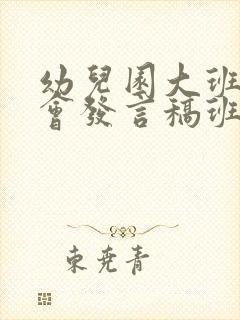 幼兒園大班
會發言稿班
東堯青